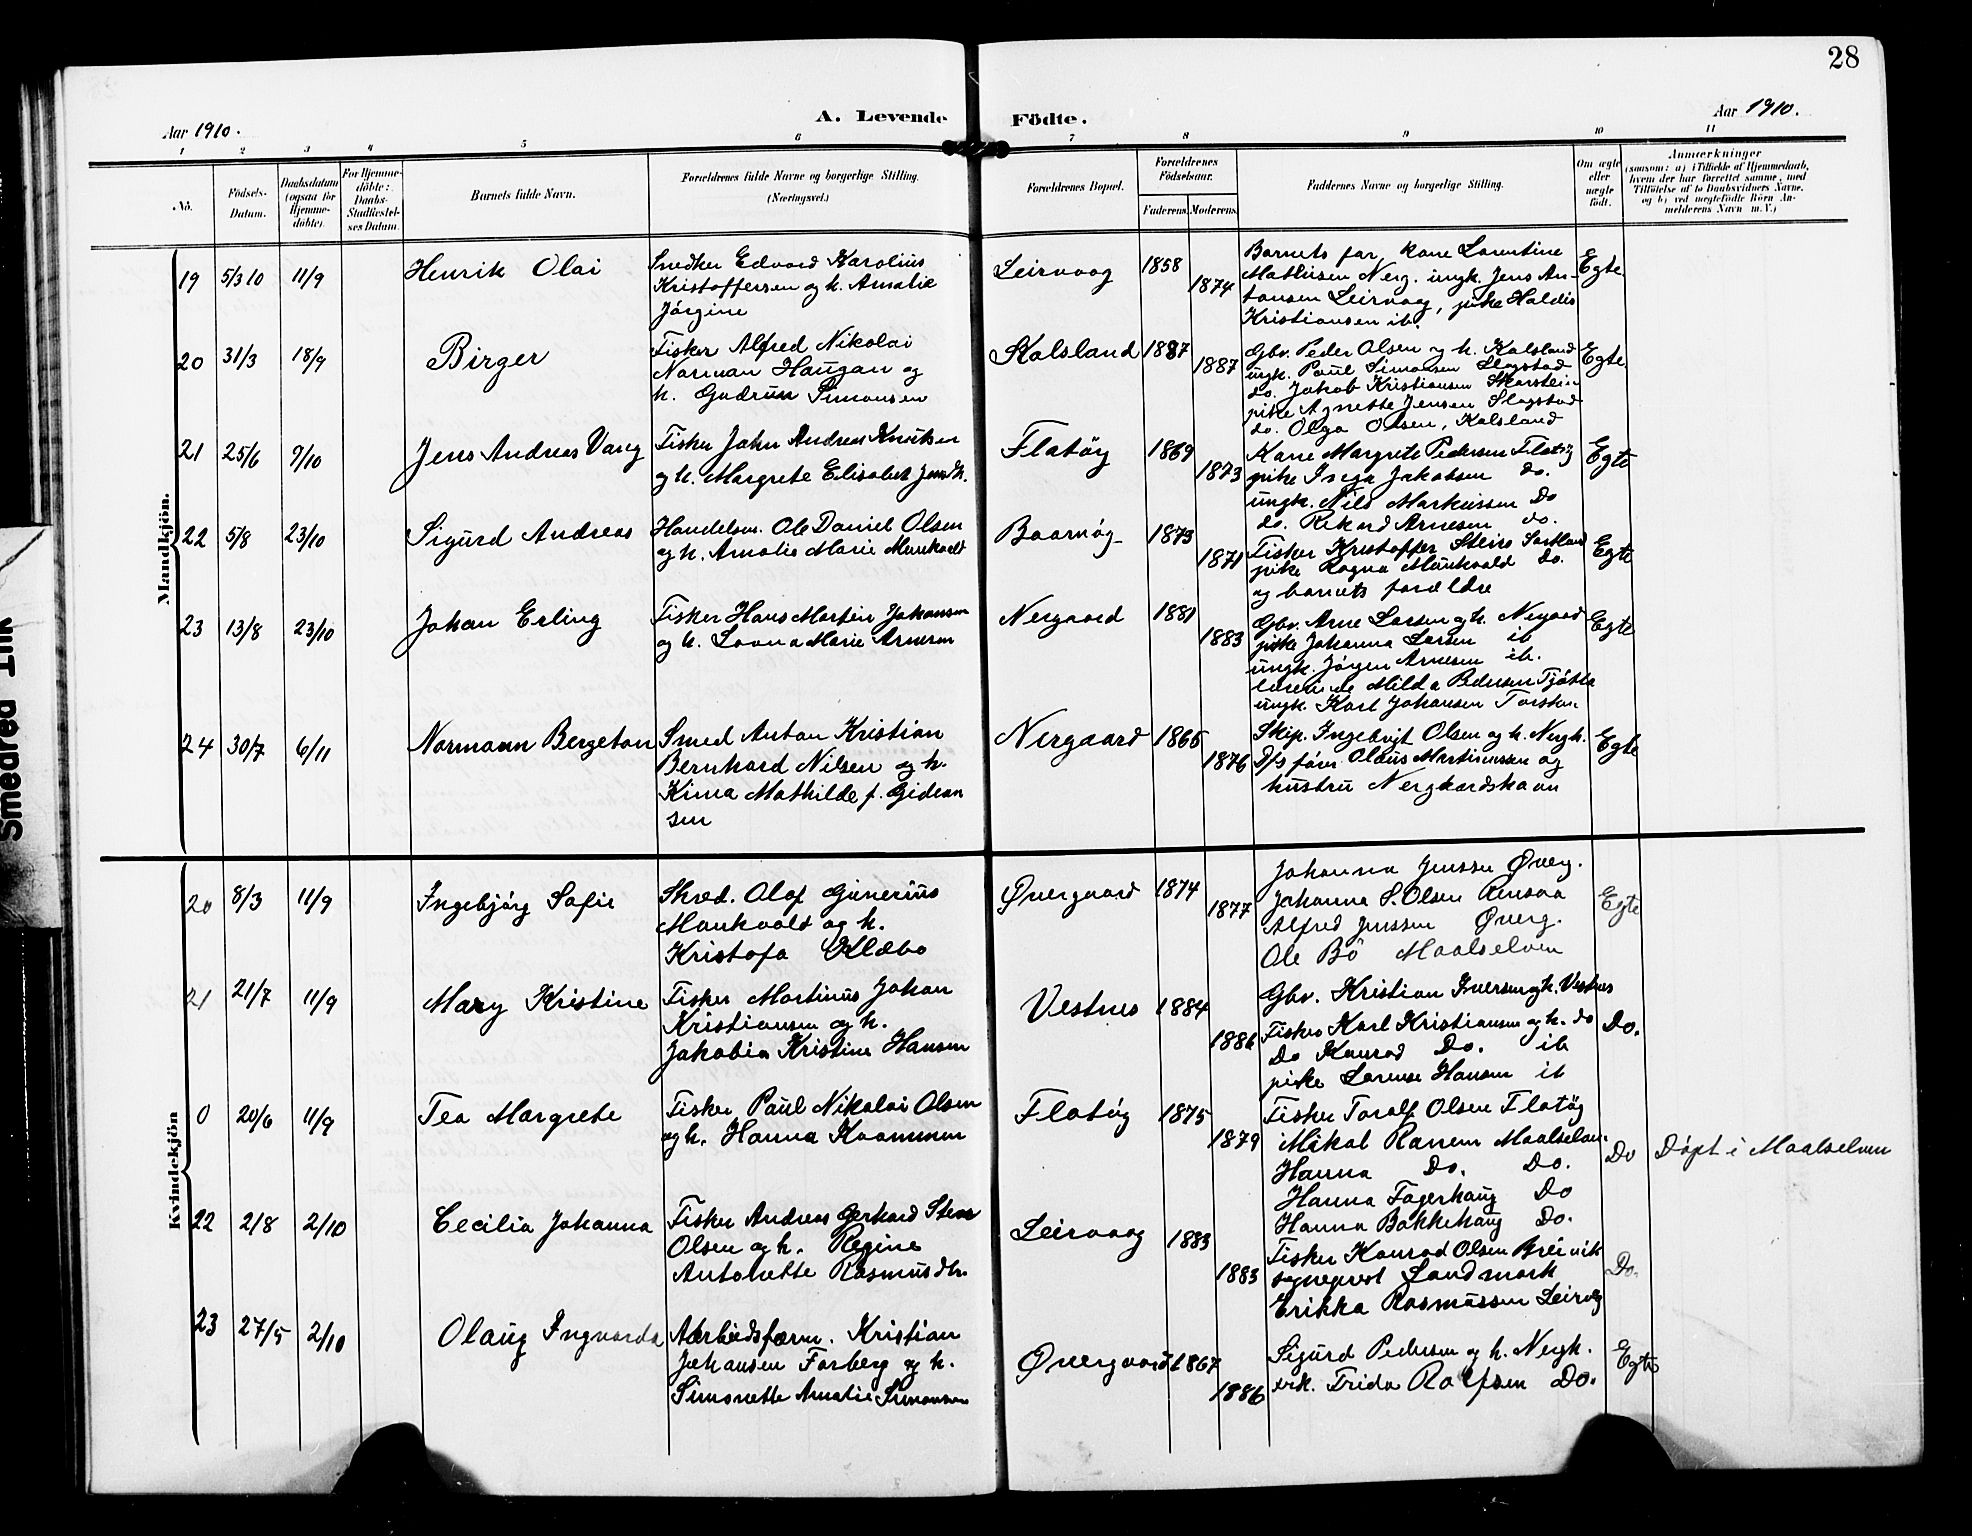 28
A. Levende Födte.
Aar 1910.
Aar 1910.
1 2 3 4 5 6 7 8 9 10 11
No.
Födsels-Datum.
Daabsdatum (ogsaa for Hjemme-döbte)
For Hjemme-döbte: Daabs-Stadfæstel-ses Datum.
Barnets fulde Navn.
Forældrenes fulde Navne og borgerlige Stilling.
(Næringsvei.)
Forældrenes Bopæl.
Forældrenes Födselsaar.
Faderens. Moderens.
Faddernes Navne og borgerlige Stilling.
Om ægte eller uægte födt.
Anmærkninger
(saasom: a) i Tilfælde af Hjemmedaab,
hvem der har forrettet samme, med
Tilföielse af to Daabsvidners Navne.
og b) ved uægtefödte Börn An-
melderens Navn m. V.)
Mandkjön.
19 5/3 10 11/9 Henrik Olai
Snedker Edvard Karolius
Kristoffersen og h. Amalie
Jørgine
Leirvaag 1858 1874
Barnets far, kone Larentine
Mathisen Nerg. ungk. Jens An-
tonsen Leirvaag, pike Haldis
Kristiansen ib.
Egte
20 31/3 18/9 Birger
Fisker Alfred Nikolai
Norman Haugan og
h. Gudrun Simonsen
Kalsland 1887 1887
Gbr. Peder Olsen og h. Kalsland
ungk. Paul Simonsen Slagstad
do. Jakob Kristiansen Skarstein
pike Agnette Jensen Slagstad
do. Olga Olsen, Kalsland
Egte
21 25/6 9/10 Jens Andreas Vang
Fisker John Andreas Knutsen
og h. Margrete Elisabet Jensdt.
Flatøy 1869 1873
Kone Margrete Pedersen Flatøy
pike Inga Jakobsen do.
ungk. Nils Markussen Do
do. Rikard Arnesen do.
Egte
22 5/8 23/10 Sigurd Andreas
Handelsm. Ole Daniel Olsen
og h. Amalie Marie Munkvold
1873 1871
Fisker Kristoffer Steiro
pike Ragna Munkvold do.
og barnets forældre
Egte
23 13/8 23/10 Johan Erling
Fisker Hans Martin Johansen
og h. Lovna Marie Arnesen
Nergaard 1881 1883
Gbr. Arne Larsen og h. Nergaard
pike Johanna Larsen ib
ungk. Jørgen Arnesen ib.
lærerinde Milda Pedersen Tjøtta
ungk. Karl Johansen Torsken.
Egte
24 30/7 6/11 Normann Bergeton
Smed Anton Kristian
Bernhard Nilsen og h.
Kima Mathilde f. Gideon
sen
Nergaard 1865 1876
Skip. Ingebrigt Olsen og h. Nergh.
D/s fører Olaus Martinussen og
hustru Nergaardshavn
Egte
Kvindekjön
20 8/3 11/9 Ingebjørg Sofie
Skred. Olaf Gunerius
Munkvold og h.
Kristofa Klæbo
Øvergaard 1874 1877
Johanna Jenssen Øverg.
Johanna S. Olsen Rensaa
Alfred Jenssen Øverg.
Ole Bø Maalselven
Egte
21 21/7 11/9 Mary Kristine
Fisker Martinus Johan
Kristiansen og h.
Jakobia Kristine Hansen
Vestnes 1884 1886
Gbr. Kristian Iversen og h. Vestnes
Fisker Karl Kristiansen og h. do
Do Konrad Do. ib
pike Lorense Hansen ib
Do.
0 20/6 11/9 Tea Margrete
Fisker Paul Nikolai Olsen
og h. Hanna Kaarensen
Flatøy 1875 1879
Fisker Toralf Olsen Flatøy
Mikal Ranem Maalselven.
Hanna Do. Do.
Hanna Fagerhaug Do
Hanna Bakkehaug Do.
Do
Døpt i Maalselven
22 2/8 2/10 Cecilia Johanna
Fisker Andreas Gerhard Sten
Olsen og h. Regine
Antonette Rasmusdt.
Leirvaag 1883 1883
Fisker Konrad Olsen Breivik
sogneprest Landmark
Erikka Rasmussen Leirvåg
Do.
23 27/5 2/10 Olaug Ingvarda
Arbeidsform. Kristian
Johansen Forberg og h.
Simonette Amalie Simonsen
Øvergaard 1867 1886
Sigurd Pedersen og h. Nergh.
frk. Frida Rolfsen Do.
Egte
Smedred Ink